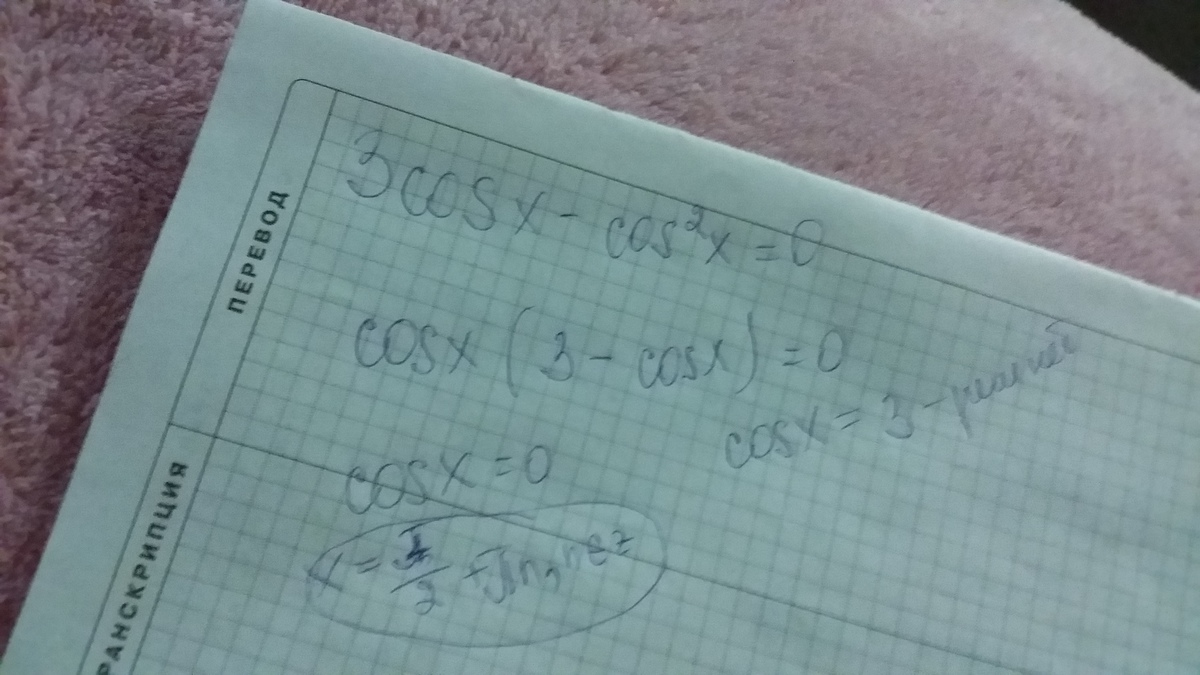 ПЕРЕВОД
3cosx - cos²x = 0
cosx (3 - cosx) = 0
cosx = 0
cosx = 3 - реш нет
x = π/2 + πn, n∈z
РАНСКРИПЦИЯ